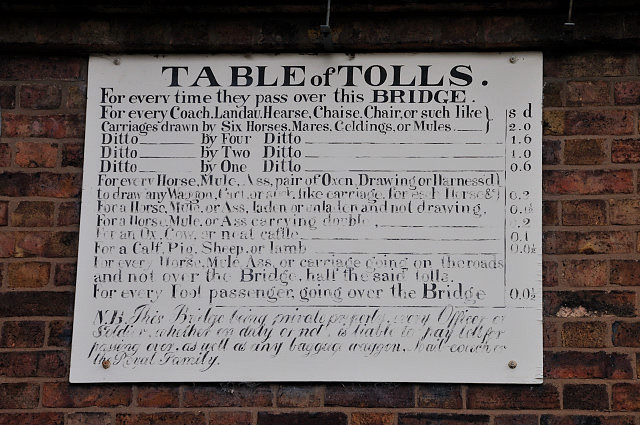 TABLE of TOLLS.
For every time they pass over this BRIDGE.
For every Coach, Landau, Hearse, Chaise, Chair, or such like } s d
Carriages drawn by Six Horses, Mares, Geldings, or Mules. 2.0
Ditto by Four Ditto 1.6
Ditto by Two Ditto 1.0
Ditto by One Ditto 0.6
For every Horse, Mule, Ass, pair of Oxen Drawing or Harness'd }
to draw any Waggon, Cart, or such like carriage, for each Horse &c 0.2
For a Horse, Mule, or Ass, laden or unladen and not drawing, 0.1½
For a Horse, Mule, or Ass carrying double .2
For an Ox, Cow, or neat cattle 0.1
For a Calf, Pig, Sheep, or lamb 0.0½
For every Horse, Mule Ass, or carriage going on the roads
and not over the Bridge, half the said tolls.
For every Foot passenger, going over the Bridge 0.0½
N.B. This Bridge being private property, every Officer or
Soldier, whether on duty or not, is liable to pay toll for
passing over, as well as any baggage waggon, Mail-coach or
the Royal Family.